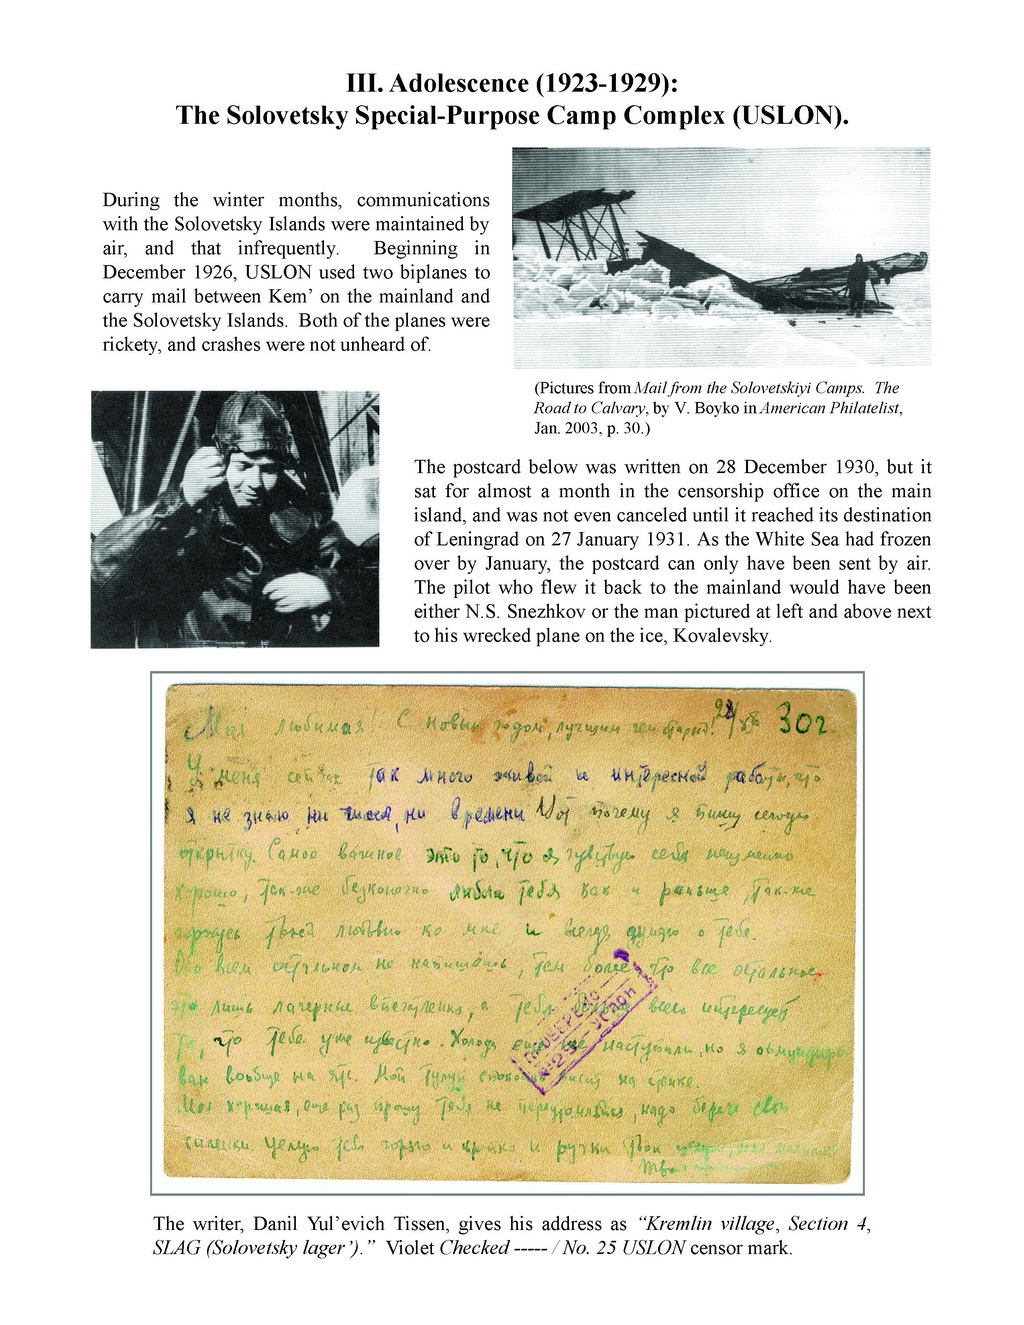 III. Adolescence (1923-1929):
The Solovetsky Special-Purpose Camp Complex (USLON).
During the winter months, communications
with the Solovetsky Islands were maintained by
air, and that infrequently. Beginning in
December 1926, USLON used two biplanes to
carry mail between Kem’ on the mainland and
the Solovetsky Islands. Both of the planes were
rickety, and crashes were not unheard of.
(Pictures from Mail from the Solovetskiyi Camps. The
Road to Calvary, by V. Boyko in American Philatelist,
Jan. 2003, p. 30.)
The postcard below was written on 28 December 1930, but it
sat for almost a month in the censorship office on the main
island, and was not even canceled until it reached its destination
of Leningrad on 27 January 1931. As the White Sea had frozen
over by January, the postcard can only have been sent by air.
The pilot who flew it back to the mainland would have been
either N.S. Snezhkov or the man pictured at left and above next
to his wrecked plane on the ice, Kovalevsky.
Моя любимая! С новым годом, лучшим чем старый! 30г
У меня сейчас так много живой и интересной работы, что
я не знаю ни чисел, ни времени Вот почему я пишу сегодня
открытку. Самое важное это то, что я чувствую себя неизменно
хорошо, так-же безконечно люблю тебя как и раньше, так-же
горжусь твоей любовью ко мне и всегда думаю о тебе.
Обо всем остальном не напишешь, тем более что все остальное
это лишь лагерные впечатления, а тебя больше всего интересует
то, что тебе уже известно. Холода еще не наступили, но я
вообще на ять. Мой тулуп спокойно висит на стенке.
Моя хорошая, еще раз прошу тебя не переутомляться, надо беречь свои
силенки. Целую тебя горячо и крепко и ручки Твои
Твой
ПРОВЕРЕНО
№ 25 - УСЛОН
The writer, Danil Yul’evich Tissen, gives his address as “Kremlin village, Section 4,
SLAG (Solovetsky lager’).” Violet Checked ----- / No. 25 USLON censor mark.